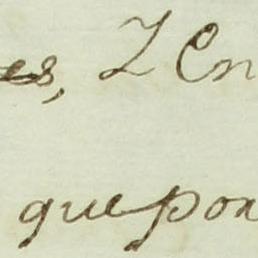 es, Y En
que por